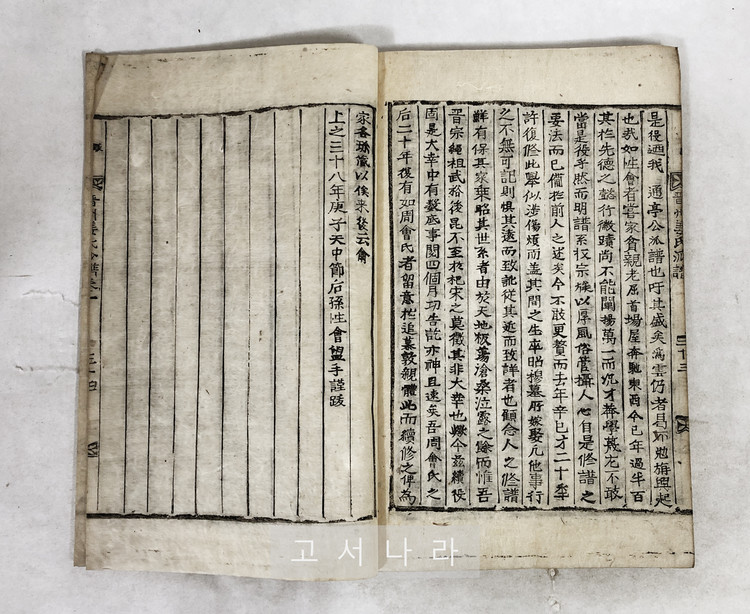 是後迺我 通亭公派譜也吁其盛矣為雲仍者曷不勉旃興起
也哉如性會者窶家貧親老屈首場屋奔馳東西今已年過半百
其於先德之懿行徽蹟尚不能闡揚萬一而况才莽學蔑尤不敢
當是役乎然而明譜系收宗族以厚風俗管攝人心自是修譜之
要法而已備於前人之述矣今不敢更贅而去年辛巳才二十年
許復修此舉似涉傷煩而盖其間之生卒昭穆墓所嫁娶凡他事行
之不無可記則惧其遠而致訛從其近而致詳者也顧念人之修譜
鮮有保其家乗昭其世系者由於天地板蕩滄桑泣露之餘而惟吾
晋宗繩祖武裕後昆不至於杞宋之莫徵其非大幸也歟今玆續役
固是大幸中有數底事閱四個月功告訖亦神且速矣吾周會氏之
后二十年復有如周會氏者留意於追慕敦親體此而續修之俾為
晉州姜氏派譜
二十三
家者珎儀以俟来後云爾
上之三十八年庚子天中節后孫性會盥手謹跋
晉州姜氏全譜卷一
三十四
고서나라